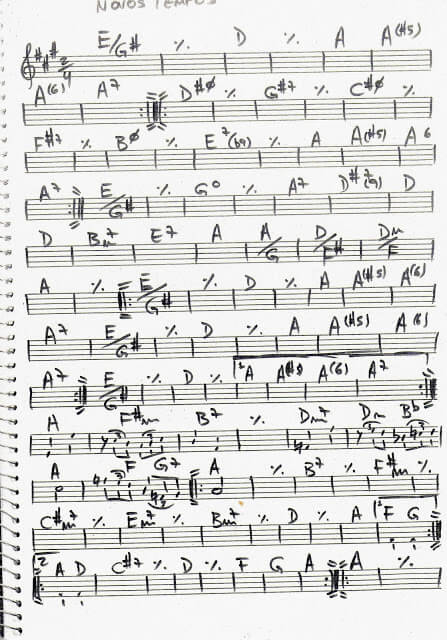 NOVOS TEMPOS
2/4 E/G# ٪ D ٪ A A(#5)
A(6) A7 D#ø ٪ G#7 ٪ C#ø ٪
F#7 ٪ Bø ٪ E7(b9) ٪ A A(#5) A6
A7 E/G# ٪ G° ٪ A7 D#7(9) D
D Bm7 E7 A A/G D/F# Dm/F
A ٪ E/G# ٪ D ٪ A A(#5) A(6)
A7 E/G# ٪ D ٪ A A(#5) A(6)
A7 E/G# ٪ D ٪ 1 A A(#5) A(6) A7
A F#m B7 ٪ Dm7 Dm Bb
A F G7 A ٪ B7 ٪ F#m ٪
C#m7 ٪ Em7 ٪ Bm7 ٪ D ٪ A 1 F G
2 A D C#7 ٪ D ٪ F G A A ٪